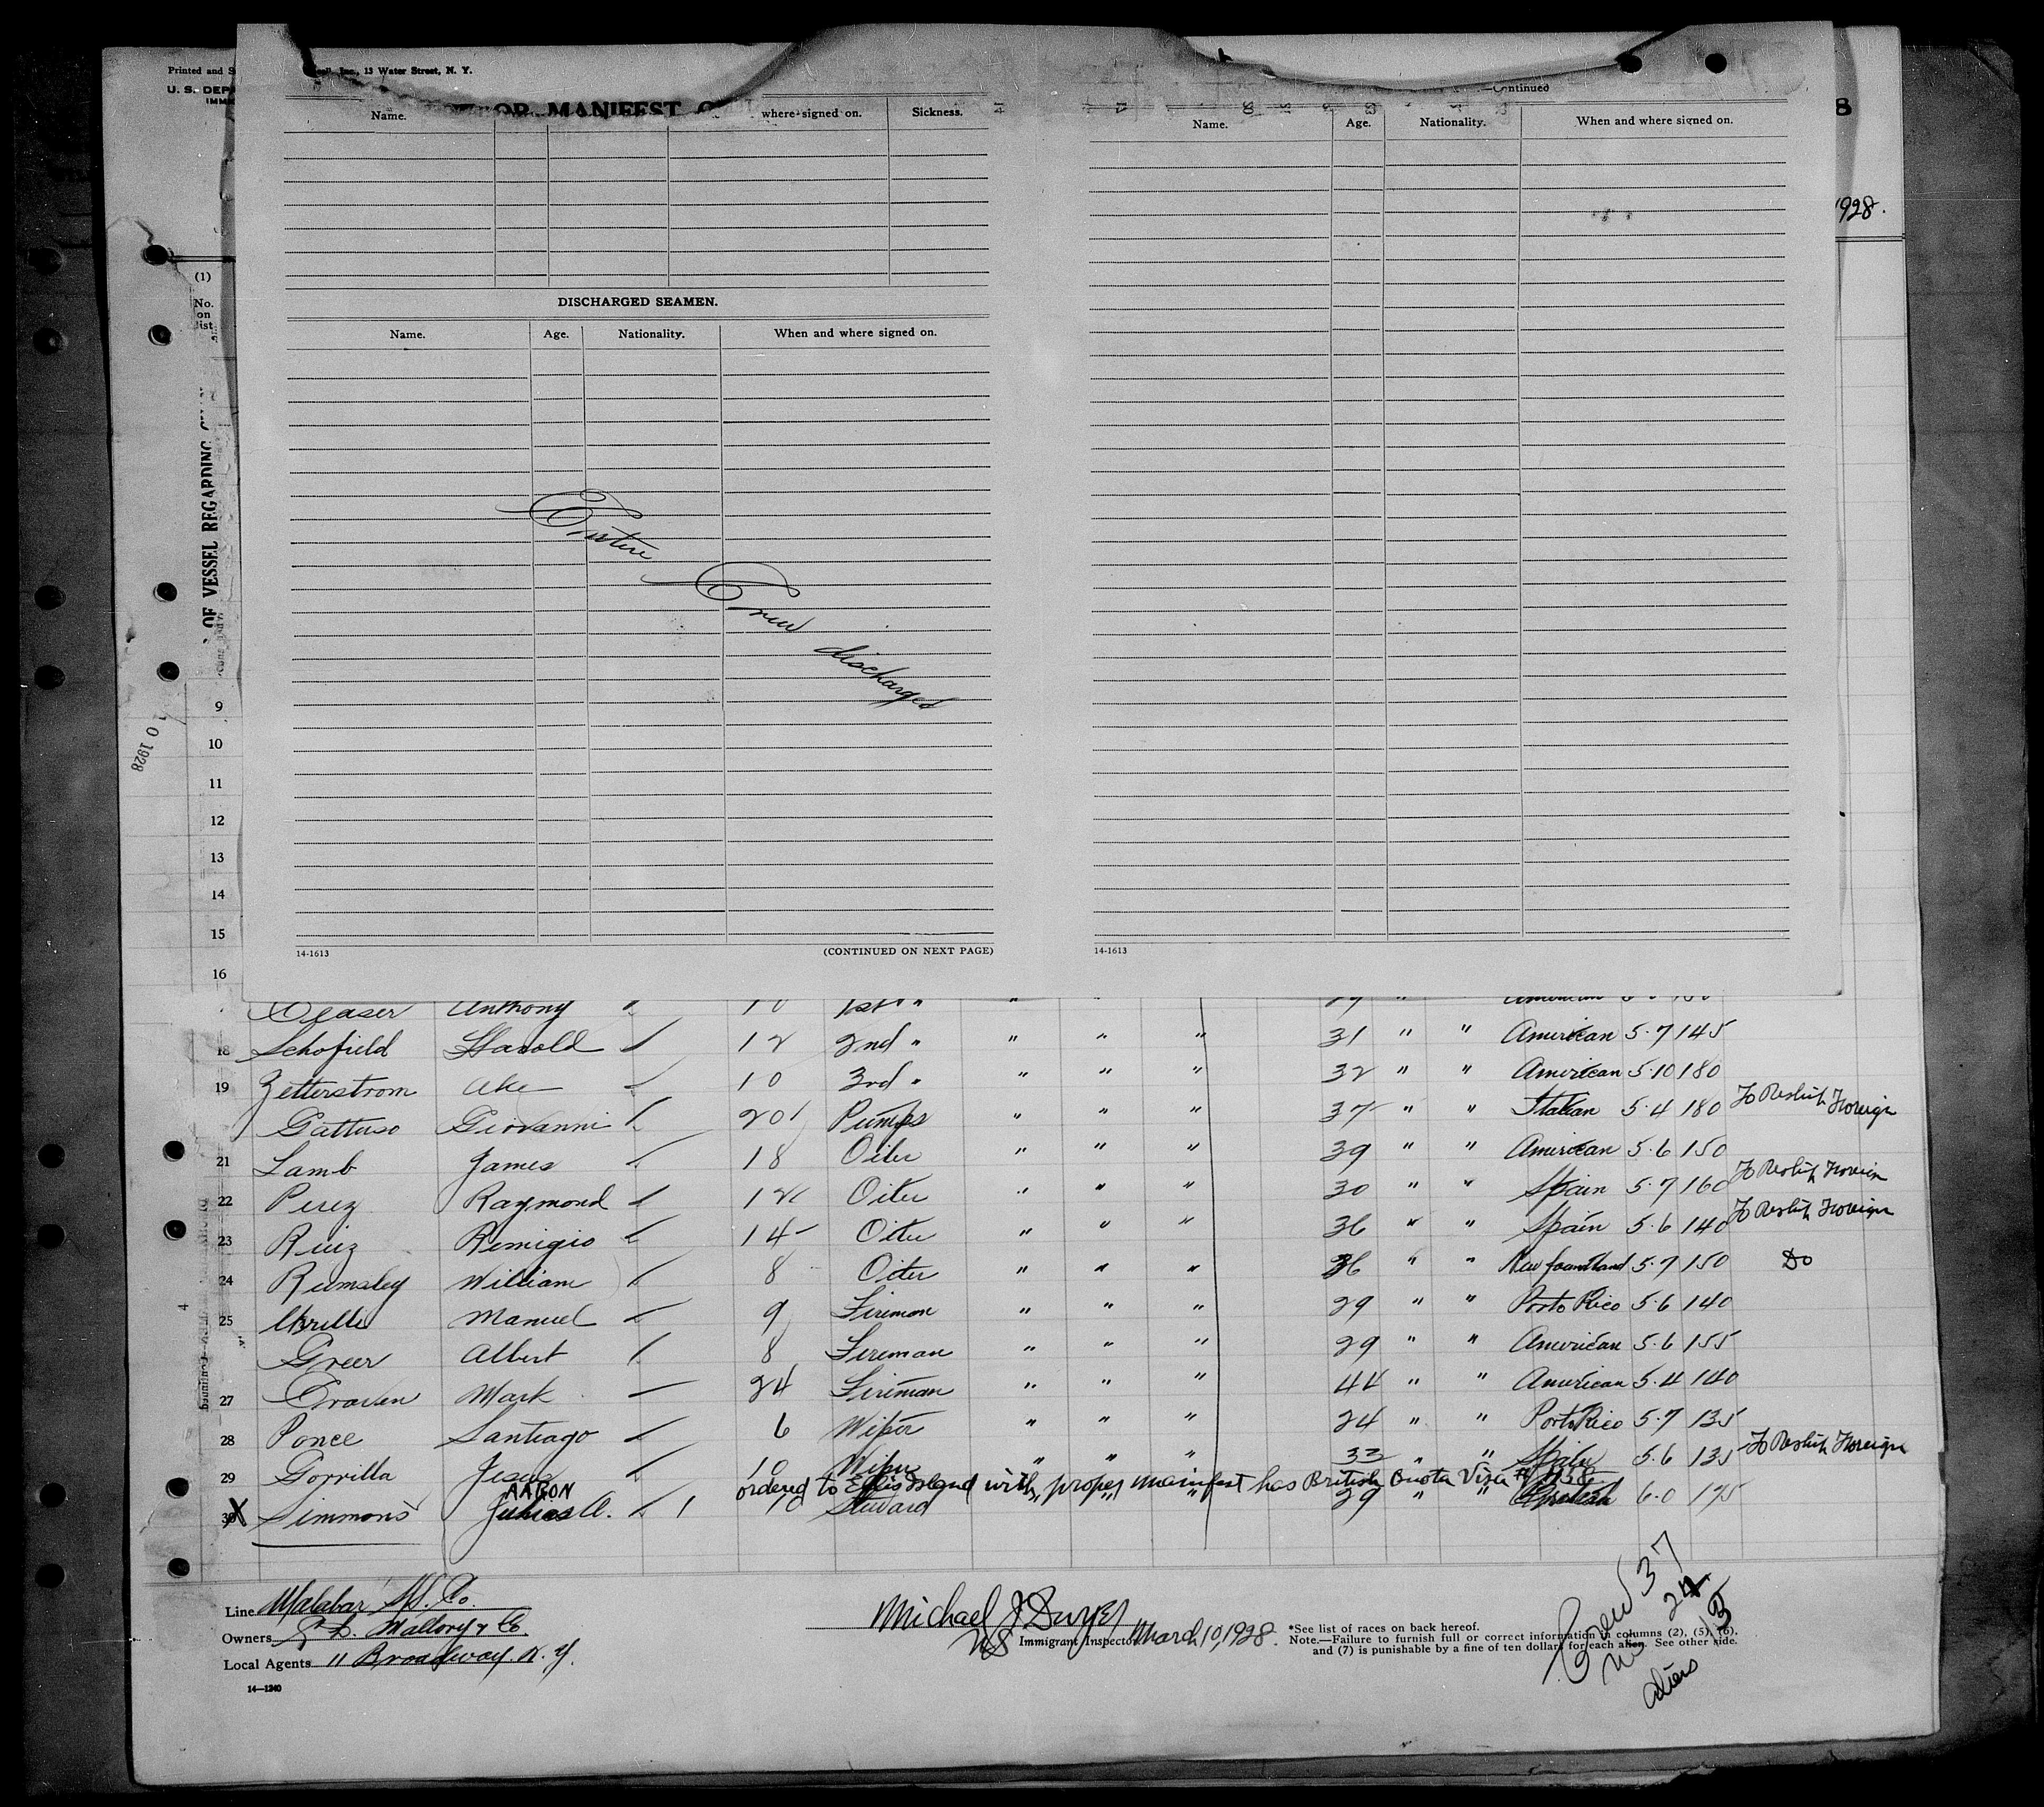 Printed and S
Inc., 13 Water Street, N. Y.
U. S. DEPA
IMMI
OR MANIFEST O
Name. where signed on. Sickness.
—Continued
Name. Age. Nationality. When and where signed on.
8
1928.
(1)
No. on list
DISCHARGED SEAMEN.
Name. Age. Nationality. When and where signed on.
OF VESSEL REGARDING
Entire Crew discharged
10 1928
9
10
11
12
13
14
15
16
14-1613 (CONTINUED ON NEXT PAGE) 14-1613
Anthony 10 1st " " " 29 " American
18 Schofield Harold 12 2nd " " " " 31 " " American 5.7 145
19 Zetterstrom Ake 10 3rd " " " " 32 " " American 5.10 180
Gattuso Giovanni 20 Pumps " " " 37 " " Italian 5.4 180 To Reship Foreign
21 Lamb James 18 Oiler " " " 39 " " American 5.6 150
22 Perez Raymond 12 Oiler " " " 30 " " Spain 5.7 160 To Reship Foreign
23 Ruiz Remigio 14 Oiler " " " 36 " " Spain 5.6 140 To Reship Foreign
24 Rumsley William 8 Oiler " " " 36 " " New foundland 5.7 150 Do
25 Manuel 9 Firemon " " " 29 " " Porto Rico 5.6 140
Greer Albert 8 Fireman " " " 29 " " American 5.6 155
27 Craven Mark 24 Fireman " " " 44 " " American 5.4 140
28 Ponce Santiago 6 Wiper " " " 24 " " Porto Rico 5.7 135
29 Gorrilla Jesus 10 Wiper " " " 33 " " Spain 5.6 135 To Reship Foreign
ordered to Ellis Island with proper mainfest has British Quota Visa # 1938
AARON
30 X Simmons A. 1 10 Steward " " " 29 " " British 6.0 175
Line Malabar SS. Co.
Owners C. D. Mallory & Co
Local Agents 11 Broadway. N. Y.
14—1240
Michael J Dwyer
Immigrant Inspector March 10, 1928.
*See list of races on back hereof.
Note.—Failure to furnish full or correct information in columns (2), (5), (6), and (7) is punishable by a fine of ten dollars for each alien. See other side.
Crew 37
US 24
Aliens 13